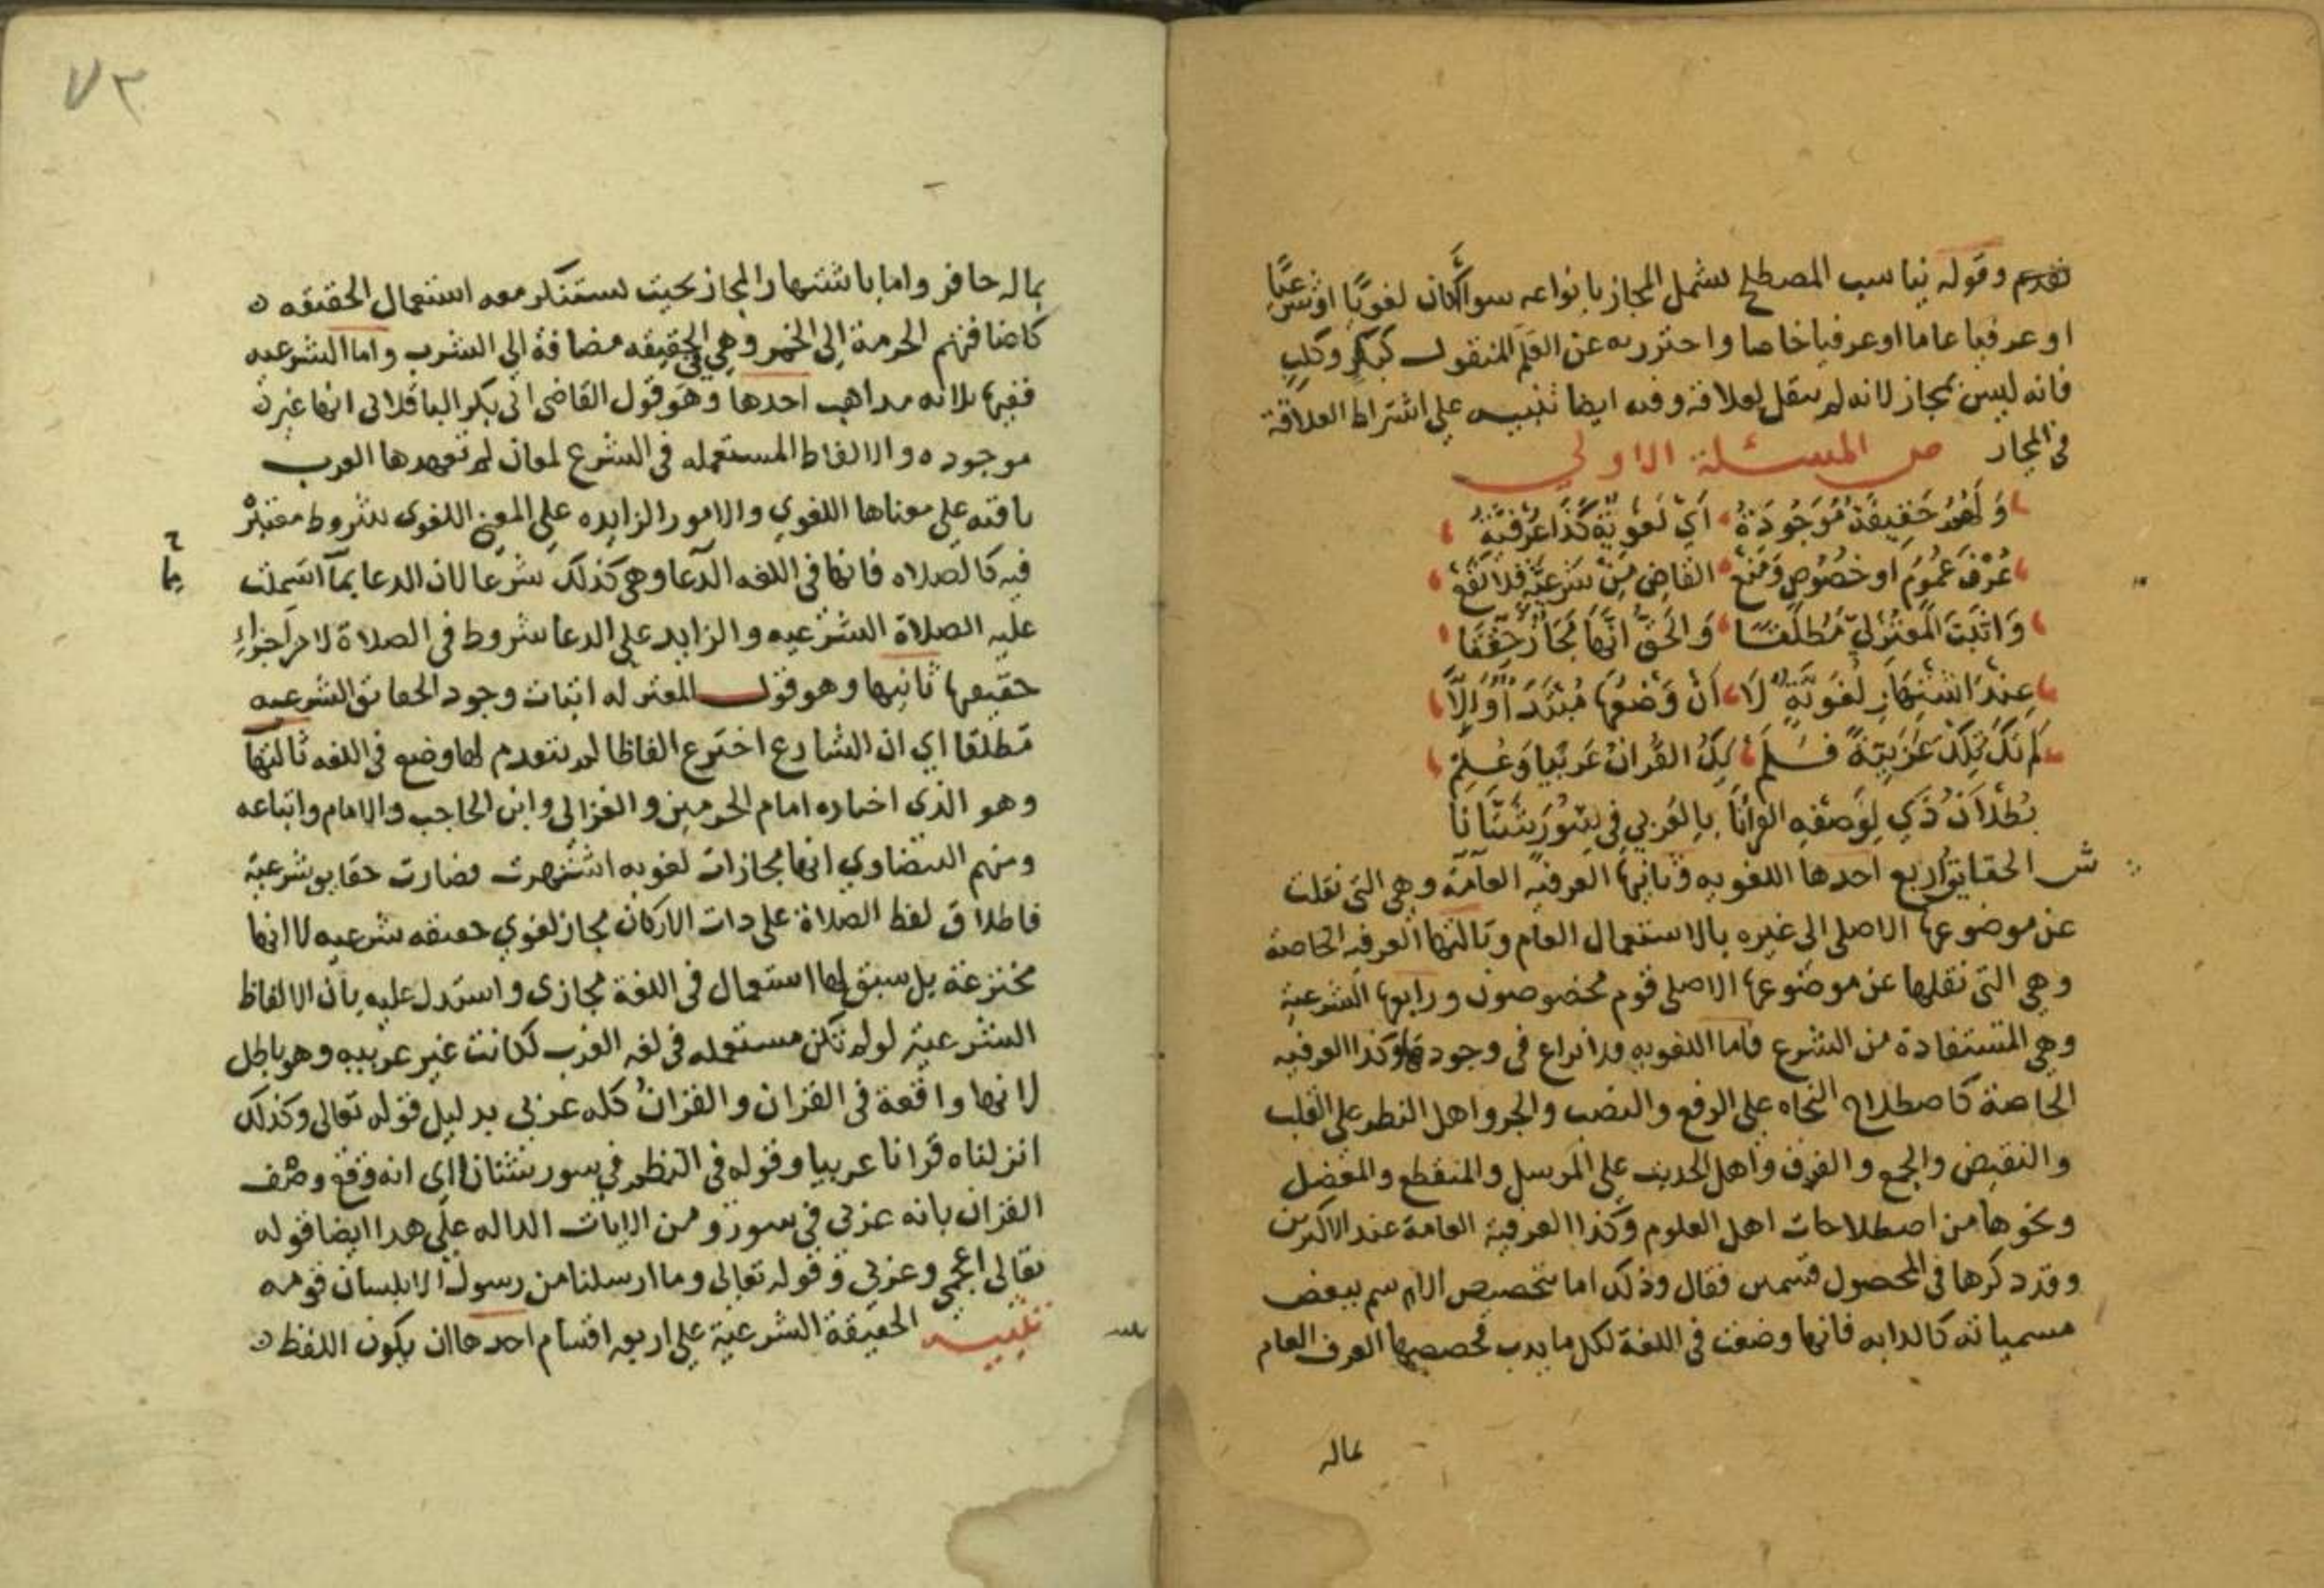 تقدم وقوله يناسب المصطلح يشمل المجاز بانواعه سوا أكان لغويا اوشرعيا
او عرفيا عاما اوعرفيا خاصا واحترز به عن العلم المنقول كبكر وكلب
فانه ليس بمجاز لانه لم ينقل لعلاقة وفيه ايضا تنبيه على اشتراط العلاقة
في المجاز ص المسئلة الاولى
وَلَهُمُ حَقِيقَة مَوْجُودَةُ اَيْ لغَوِيّة كَذَا عُرْفِيَّةُ
عُرْفَ عمُومٍ او خصُوصٍ وَمَنَعْ القاضِي مِنْ شَرْعيَّةٍ فلا تَقَعْ
وَاثْبَتَ المُعْتزليّ مُطْلقًا وَالحَقُّ انّهَا مَجَازٌ حُقّقَا
عِنْدَ اشْتِهَارِ لُغَويَّةٍ لَا اَنْ وَضْعُهَا مُبْتَدَأ وَالّا
لَمْ تَكُ تِلكَ عَرَبيّةً فَلَمْ يَكُ القُرانُ عَرَبيا وَعُلِمْ
بُطْلانُ ذَي لِوَصْفِهِ القرانَا بالعَرَبي في سُوَرٍ شَتَّانَا
ش الحقايق اربع احدها اللغويه وثانيها العرفيه العامة وهي التي نقلت
عن موضوعها الاصلي الى غيره بالاستعمال العام وثالثها العرفيه الخاصة
وهي التي نقلها عن موضوعها الاصلي قوم مخصوصون ورابعها الشرعية
وهي المستفادة من الشرع فاما اللغويه فلا نزاع في وجودها وكذا العرفيه
الخاصة كاصطلاح النحاه على الرفع والنصب والجر واهل النظر على القلب
والنقيض والجمع والفرق واهل الحديث على المرسل والمنقطع والمعضل
ونحوها من اصطلاحات اهل العلوم وكذا العرفية العامة عند الاكثرين
وقد ذكرها في المحصول قسمين فقال وذلك اما بتخصيص الاسم ببعض
مسمياته كالدابه فانها وضعت في اللغة لكل ما يدب فخصصها العرف العام
بماله
٧٣
بماله حافر واما باشتهار المجاز بحيث يستنكر معه استعمال الحقيقه
كاضافتهم الحرمة الى الخمر وهي في الحقيقه مضافة الى الشرب واما الشرعيه
ففيها ثلاثه مذاهب احدها وهو قول القاضي ابي بكر الباقلاني انها غير
موجوده والالفاظ المستعمله في الشرع لمعان لم تعهدها العرب
باقيه على معناها اللغوي والامور الزايده على المعنى اللغوى شروط معتبرة
فيه كالصلاه فانها في اللغه الدعا وهي كذلك شرعا لان الدعا بما اشتملت
عليه الصلاة الشرعيه والزايد على الدعا شروط في الصلاة لا من اجزاء
حقيقتها ثانيها وهو قول المعتزله اثبات وجود الحقائق الشرعيه
مطلقا اي ان الشارع اخترع الفاظا لم يتقدم لها وضع في اللغه ثالثها
وهو الذي اختاره امام الحرمين والغزالي وابن الحاجب والامام واتباعه
ومنهم البيضاوي انها مجازات لغويه اشتهرت فصارت حقايق شرعية
فاطلاق لفظ الصلاة على ذات الاركان مجاز لغوي حقيقه شرعيه لا انها
مخترعة بل سبق لها استعمال في اللغة مجازى واستدل عليه بان الالفاظ
الشرعية لو لم تكن مستعمله في لغه العرب لكانت غير عربيه وهو باطل
لانها واقعة في القران والقران كله عربي بدليل قوله تعالى وكذلك
انزلناه قرانا عربيا وقوله في النظم في سور شتانا اي انه وقع وصف
القران بانه عربي في سور ومن الايات الداله على هذا ايضا قوله
تعالى اعجمي وعربي وقوله تعالى وما ارسلنا من رسول الا بلسان قومه
تنبيه الحقيقة الشرعية على اربعه اقسام احدها ان يكون اللفظ